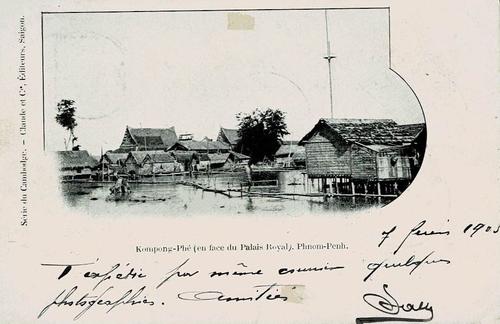 Série du Cambodge. — Claude et Cie, Éditeurs, Saigon.
Kompong-Phé (en face du Palais Royal). Phnom-Penh.
T'expédie par même courrier quelques
photographies. Amitiés